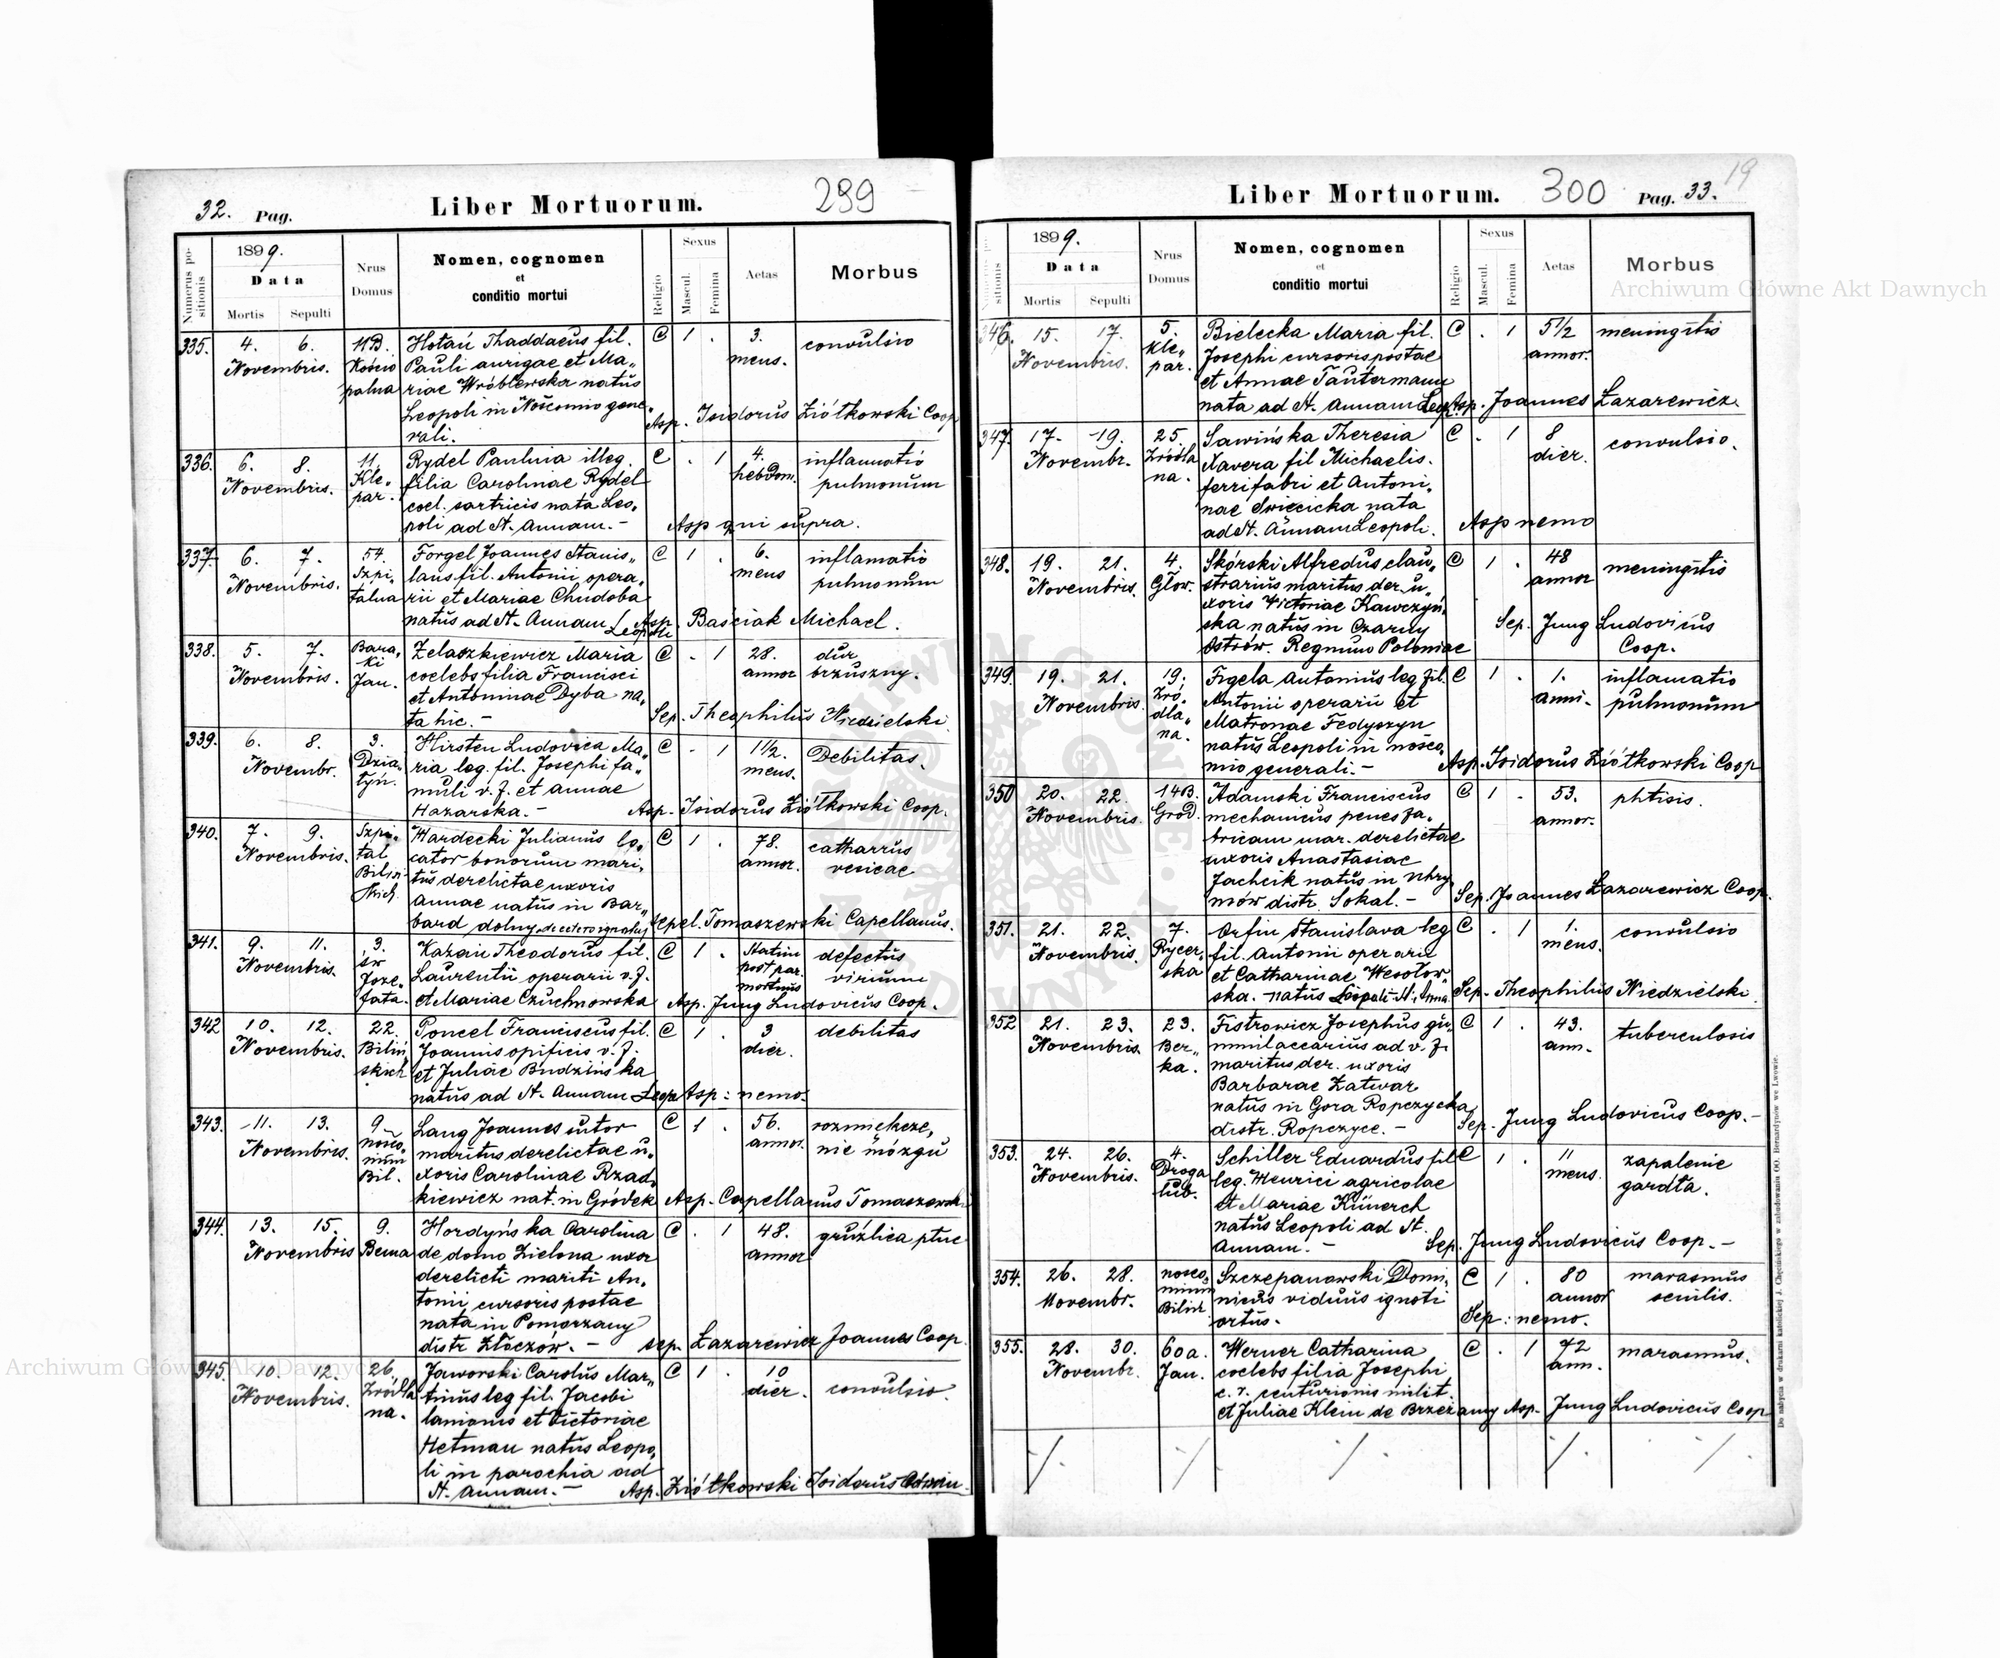 32. Pag.
Liber Mortuorum.
299
Numerus positionis
1899.
Data
Mortis Sepulti
Nrus Domus
Nomen, cognomen
et
conditio mortui
Religio
Sexus
Mascul. Femina
Aetas
Morbus
335. 4. 6. 11B. Hotań Thaddaeus fil. C 1 . 3. convulsio
Novembris. Kościo Pauli aurigae et Ma„ mens.
palna riae Wróblewska natus
Leopoli in Nosocomio gene„ Asp. Isidorus Ziółkowski Coop
rali.
336. 6. 8. 11. Rydel Paulina illeg. C . 1 4. inflammatio
Novembris. Kle„ filia Carolinae Rydel hebdom. pulmonum
par. coel. sartricis nata Leo„
poli ad St. Annam. – Asp qui supra.
337. 6. 7. 54. Forgel Joannes Stanis„ C 1 . 6. inflamatio
Novembris. Szpi„ laus fil. Antonii opera„ mens pulmonum
talna rii et Mariae Chudoba
natus ad St. Annam Leopoli Asp. Baściak Michael.
338. 5. 7. Bara„ Żelaszkiewicz Maria C . 1 28. dur
Novembris. ki coelebs filia Francisci annor brzuszny.
Jan. et Antoninae Dyba na„
ta hic. – Sep. Theophilus Niedzielski
339. 6. 8. 3. Hirsten Ludovica Ma„ C . 1 1 1/2. Debilitas.
Novembr. Dzia„ ria leg. fil. Josephi fa„ mens.
tyń. muli v. f. et Annae
Hazarska. – Asp. Isidorus Ziółkowski Coop.
340. 7. 9. Szpi„ Hardecki Julianus lo„ C 1 . 78. catharrus
Novembris. tal cator bonorum mari„ annor. vesicae
Biliń tus derelictae uxoris
skich. Annae natus in Bar„
bard dolny de cetero ignotus Sepel. Tomaszewski Capellanus.
341. 9. 11. 3. Kazan Theodorus fil. C 1 . Statim defectus
Novembris. św Laurentii operarii v. f. post par. virium
Joze„ et Mariae Czuchnowska mortuus
fata. Asp. Jung Ludovicus Coop.
342 10. 12. 22. Poncel Franciscus fil. C 1 . 3 debilitas
Novembris. Biliń Joannis opificis v. f. dier.
skich et Juliae Budzińska
natus ad St. Annam Leop Asp: nemo.
343. 11. 13. 9 Lang Joannes sutor C 1 . 56. rozmiękcze„
Novembris. noso„ maritus derelictae u„ annor. nie mózgu
mium xoris Carolinae Rzad„
Bil. kiewicz nat. in Gródek Asp. Capellanus Tomaszewski
344. 13. 15. 9. Hordyńska Carolina C . 1 48. gruźlica płuc
Novembris Bema de domo Zielona uxor annor
derelicti mariti An„
tonii cursoris postae
nata in Pomorzany
distr Złoczów. – sep. Łazarewicz Joannes Coop.
345. 10. 12. 26. Jaworski Carolus Mar„ C 1 . 10 convulsio
Novembris. Źródla tinus leg fil. Jacobi dier.
na. lanionis et Victoriae
Hetman natus Leopo„
li in parochia ad
St. Annam. – Asp. Ziółkowski Isidorus
Liber Mortuorum.
300
Pag. 33.
19
sitionis
1899.
Data
Mortis Sepulti
Nrus Domus
Nomen, cognomen
et
conditio mortui
Religio
Sexus
Mascul. Femina
Aetas
Morbus
346. 15. 17. 5. Bielecka Maria fil. C . 1 5 1/2 meningitis
Novembris. Kle„ Josephi cursoris postae annor.
par. et Annae Tautermann
nata ad St. Annam Leop. Asp. Joannes Łazarewicz
347. 17. 19. 25. Sawińska Theresia C . 1 8 convulsio.
Novembr. Źródla Xavera fil Michaelis. dier.
na. ferri fabri et Antoni„
nae Świecicka nata
ad St. Annam Leopoli. Asp nemo
348. 19. 21. 4. Skórski Alfredus clau„ C 1 . 48 meningitis
Novembris. Głow. strarius maritus der. u„ annor
xoris Victoriae Kawczyń„
ska natus in Czarny Sep. Jung Ludovicus
Ostrów. Regnum Poloniae Coop.
349. 19. 21. 19. Frgela Antonius leg fil. C 1 . 1. inflamatio
Novembris. Źró„ Antonii operarii et anni. pulmonum
dla„ Matronae Fedyszyn
na. natus Leopoli in noso„
mio generali. – Asp. Isidorus Ziółkowski Coop
350 20. 22. 14B. Adamski Franciscus C 1 . 53. phtisis.
Novembris. Gród. mechanicus penes fa„ annor.
bricam mar. derelictae
uxoris Anastasiae
Jachcik natus in Uhry„
nów distr. Sokal. – Sep. Joannes Łazarewicz Coop.
351. 21. 22. 7. Orfin Stanislava leg C . 1 1. convulsio
Novembris. Rycer„ fil. Antonii operarii mens.
ska et Catharinae Wesołow„
ska. natus Leopoli St. Anna Sep. Theophilus Niedzielski.
352 21. 23. 23. Fistrowicz Josephus gu„ C 1 . 43. tuberculosis
Novembris. Ber„ ad v. f. ann.
ka. maritus der. uxoris
Barbarae Zatwar
natus in Gora Ropczycka
distr. Ropczyce. – Sep. Jung Ludovicus Coop. –
353. 24. 26. 4. Schiller Eduardus fil C 1 . 11 zapalenie
Novembris. Droga leg. Henrici agricolae mens. gardła.
lub. et Mariae Künerch
natus Leopoli ad St.
Annam. – Sep. Jung Ludovicus Coop. –
354. 26. 28. noso„ Szczepanowski Domi„ C 1 . 80 marasmus
Novembr. mium nicus viduus ignoti annor senilis.
Biliń ortus. Sep: nemo.
355. 28. 30. 60a. Werner Catharina C . 1 72 marasmus.
Novembr. Jan. coelebs filia Josephi ann.
c. r. centurionis milit.
et Juliae Klein de Brzeżany Asp. Jung Ludovicus Coop
Do nabycia w drukarni katolickiej J. Chęcińskiego w zabudowaniu OO. Bernardynów we Lwowie.
Archiwum Główne Akt Dawnych
Archiwum Główne Akt Dawnych
ARCHIWUM GŁÓWNE AKT DAWNYCH